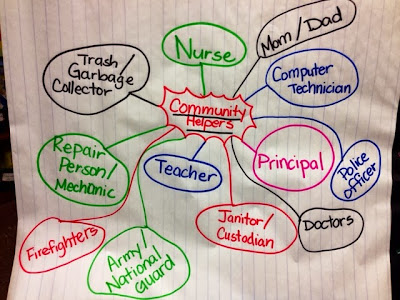 Nurse
Mom/Dad
Trash/
Garbage
Collector
Computer
Technician
Community
Helpers
Repair
Person/
Mechanic
Teacher
Principal
Police
Officer
Firefighters
Army/
National
Guard
Janitor/
Custodian
Doctors